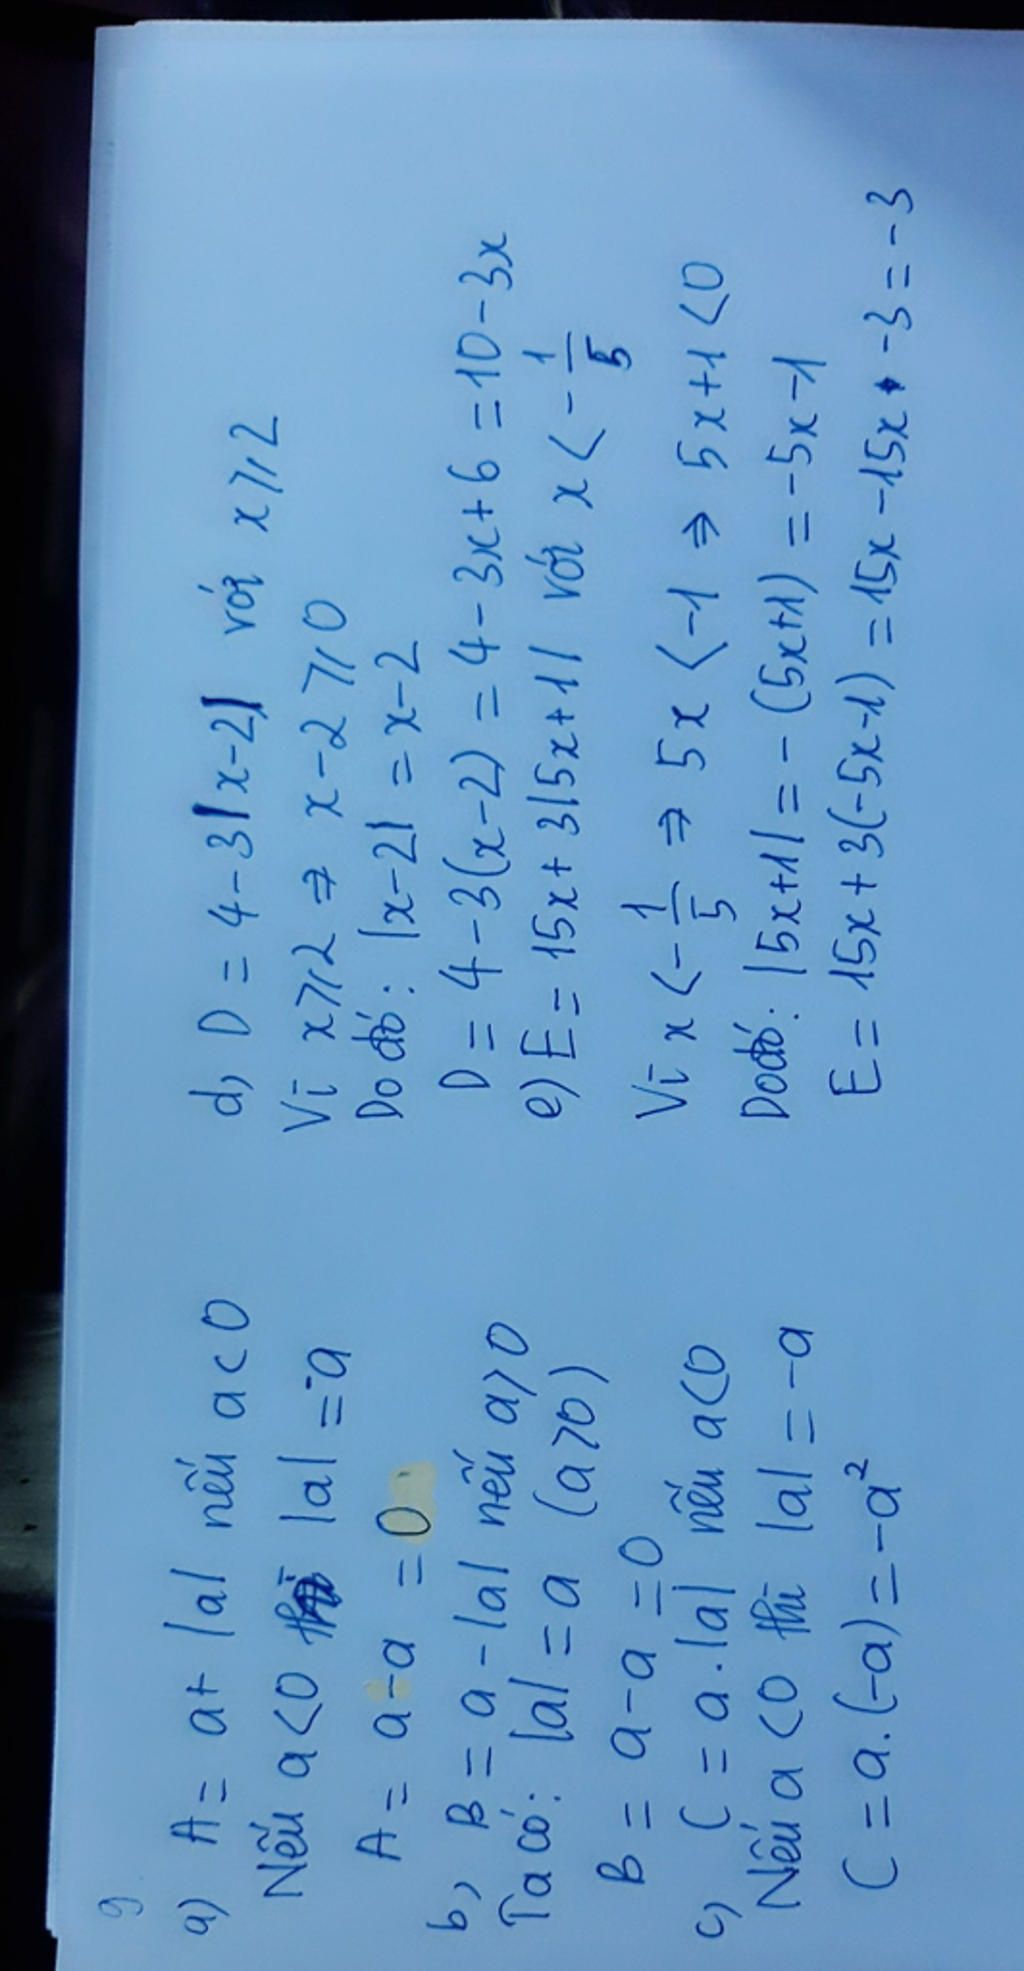 9
a) A = a + |a| nếu a < 0
Nếu a < 0 thì |a| = -a
A = a - a = 0
b, B = a - |a| nếu a ⩾ 0
Ta có: |a| = a (a ⩾ 0)
B = a - a = 0
c, C = a . |a| nếu a < 0
Nếu a < 0 thì |a| = -a
C = a . (-a) = -a²
d, D = 4 - 3|x-2| với x ⩾ 2
Vì x ⩾ 2 ⇒ x - 2 ⩾ 0
Do đó: |x-2| = x-2
D = 4 - 3(x-2) = 4 - 3x + 6 = 10 - 3x
e) E = 15x + 3|5x+1| với x < -1/5
Vì x < -1/5 ⇒ 5x < -1 ⇒ 5x+1 < 0
Do đó: |5x+1| = - (5x+1) = -5x - 1
E = 15x + 3(-5x-1) = 15x - 15x - 3 = -3